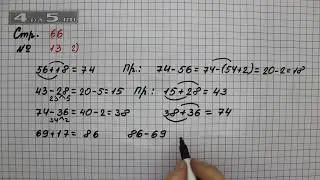 4 на 5
Стр. 66
№ 13 2)
56+18 = 74 Пр: 74-56 = 74-(54+2) = 20-2=18
43-28 = 20-5=15 Пр: 15+28 = 43
23 5
74-36 = 40-2=38 38+36 = 74
34 2
69+17 = 86 86-69